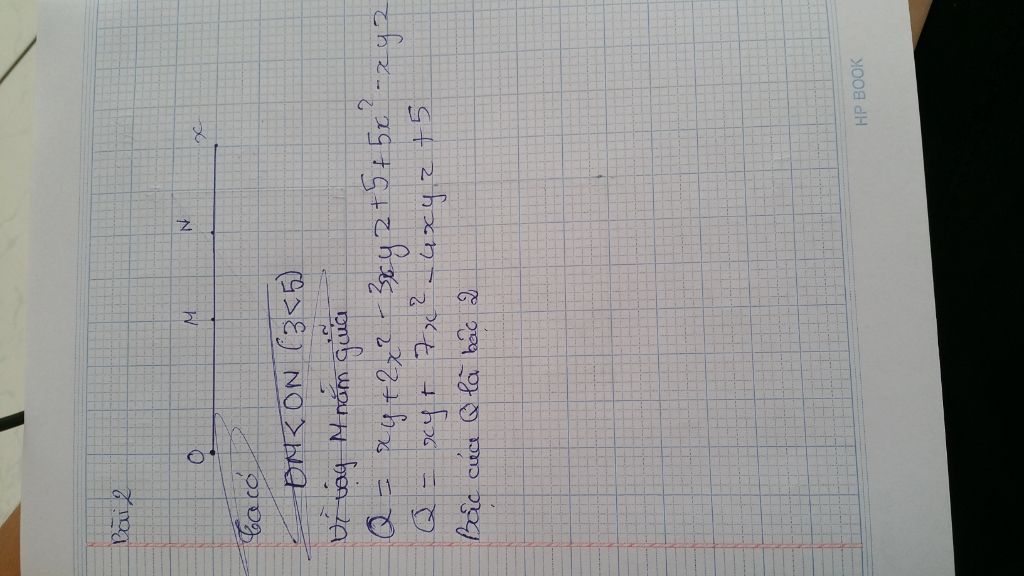 Bài 2
O M N x
Ta có
OM < ON (3 < 5)
Vì vậy M nằm giữa
Q = xy + 2x² - 3xyz + 5 + 5x² - xyz
Q = xy + 7x² - 4xyz + 5
Bậc của Q là bậc 2
HP BOOK